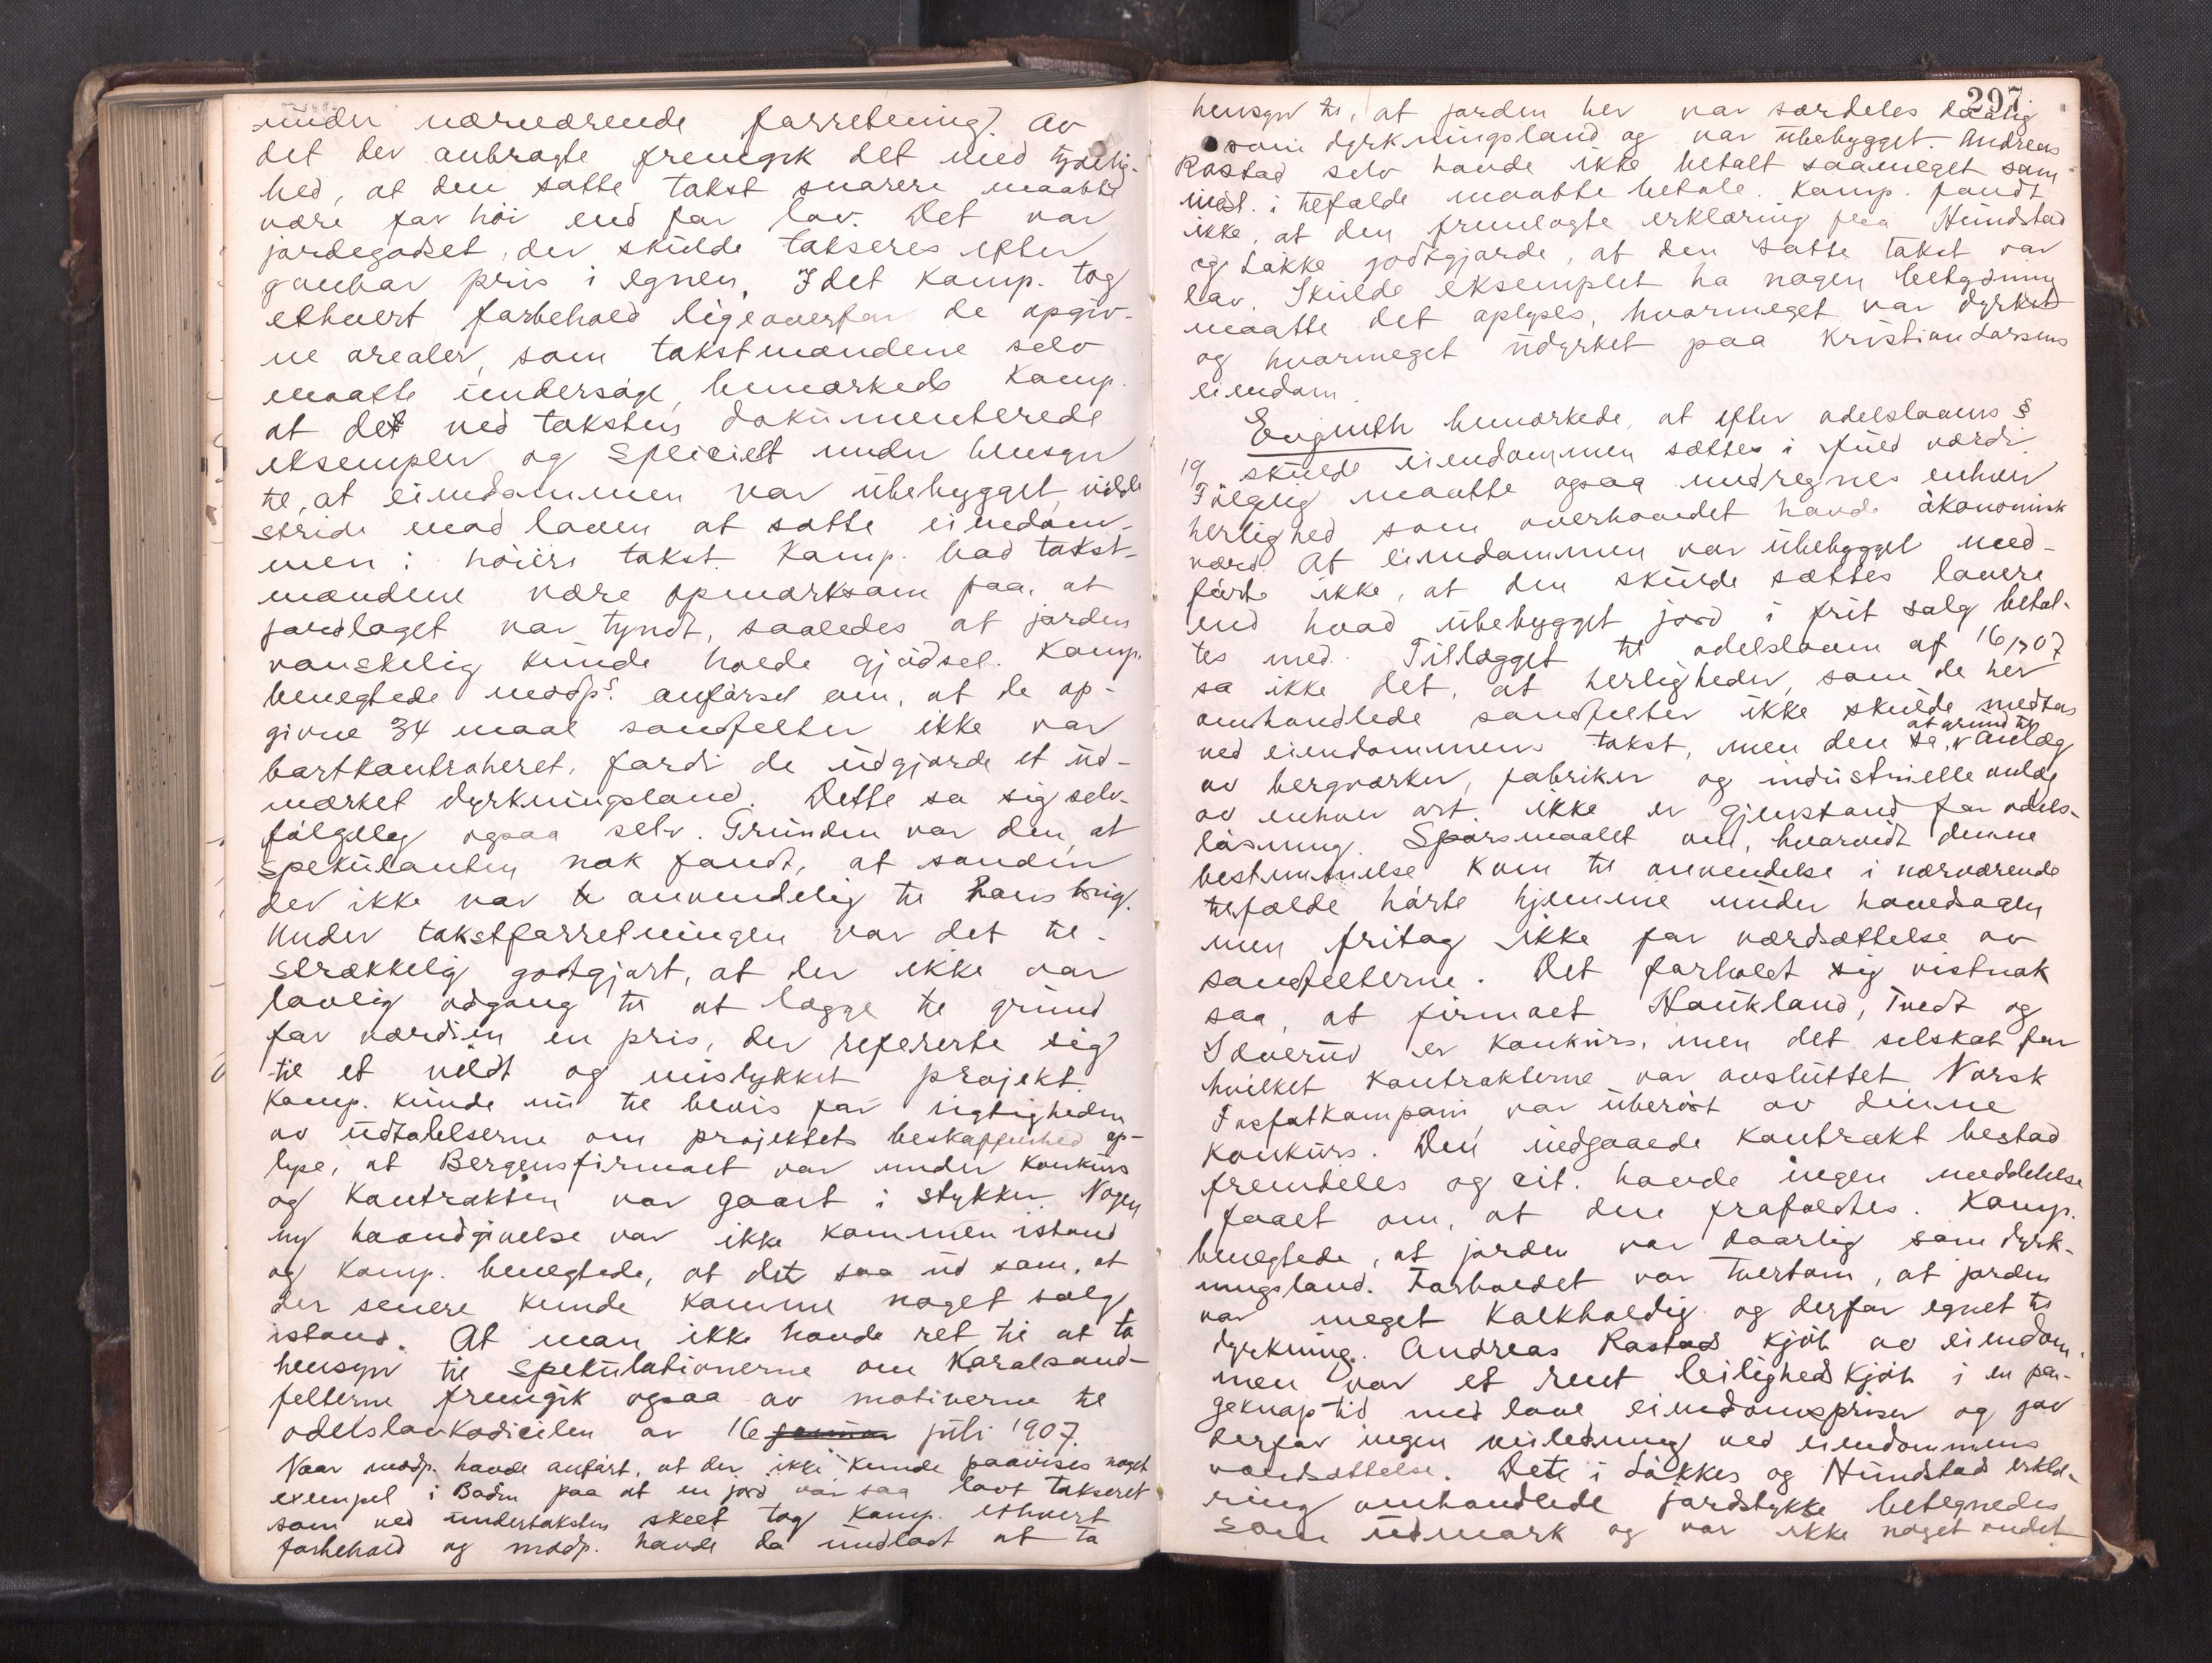 under nærværende forretning. Av
det der anbragte fremgik det med tydelig-
hed, at den satte takst snarere maatte
være for høi end for lav. Det var
jordegodset, der skulde takseres efter
gangbar pris i egnen. Idet Komp. tog
ethvert forbehold ligeoverfor de opgiv-
ne arealer, som takstmændene selv
maatte undersøge, bemærkede Komp.
at det ved taksten dokumenterede
eksempler og specielt under hensyn
til, at eiendommen var ubebygget, vilde
stride mod loven at sætte eiendom-
men i høiere takst. Komp. bad takst-
mændene være opmærksom paa, at
jordlaget var tyndt, saaledes at jorden
vanskelig kunde holde gjødsel. Komp.
benegtede modp.s anførsel om, at de op-
givne 34 maal sandfelter ikke var
bortkontraheret, fordi de udgjorde et ud-
mærket dyrkningsland. Dette sa sig selv-
følgelig ogsaa selv. Grunden var den, at
spekulanten nok fandt, at sanden
der ikke var anvendelig til hans brug.
Under takstforretningen var det til-
strækkelig godtgjort, at der ikke var
lovlig adgang til at lægge til grund
for værdien en pris, der refererte sig
til et vildt og mislykket projekt.
Komp. kunde nu til bevis for rigtigheden
av udtalelserne om projektets beskaffenhed op-
lyse, at Bergensfirmaet var under konkurs
og kontrakten var gaaet i stykker. Nogen
ny haandgivelse var ikke kommen istand
og Komp. benegtede, at det saa ud som, at
der senere kunde komme noget salg
istand. At man ikke havde ret til at ta
hensyn til spekulationerne om Koralsand-
felterne fremgik ogsaa av motiverne til
odelslovkodicilen av 16 juli 1907.
Naar modp. havde anført, at der ikke kunde paavises noget
exempel i Bodin paa at en jord var saa lavt takseret
som ved undertaksten skeet tog Komp. ethvert
forbehold og modp. havde da undladt at ta
297
hensyn til, at jorden her var særdeles daarlig
som dyrkningsland og var ubebygget. Andreas
Rastad selv havde ikke betalt saameget som
indst. i tilfælde maatte betale. Komp. fandt
ikke, at den fremlagte erklæring fra Hundstad
og Løkke godtgjorde, at den satte takst var
lav. Skulde eksemplet ha nogen betydning
maatte det oplyses, hvormeget var dyrket
og hvormeget udyrket paa Kristian Larsens
eiendom.
Engseth bemærkede, at efter odelslovens §
19 skulde eiendommen sættes i fuld værdi.
Følgelig maatte ogsaa medregnes enhver
herlighed som overhovedet havde økonomisk
værd. At eiendommen var ubebygget med-
førte ikke, at den skulde sættes lavere
end hvad ubebygget jord i frit salg betal-
tes med. Tillægget til odelsloven af 16/7 07
sa ikke det, at herligheder, som de her
omhandlede sandfelter ikke skulde medtas
ved eiendommens takst, men den sa, at grund til anlæg
av bergverker, fabriker og industrielle anlæg
av enhver art ikke er gjenstand for odels-
løsning. Spørsmaalet om, hvorvidt denne
bestemmelse kom til anvendelse i nærværende
tilfælde hørte hjemme under hovedsagen
men fritog ikke for værdsættelse av
sandfelterne. Det forholdt sig vistnok
saa, at firmaet Haukland, Tvedt og
Sverud er konkurs, men det selskab for
hvilket kontrakterne var avsluttet, Norsk
Fosfatkompani, var uberørt av denne
konkurs. Den indgaaede kontrakt bestod
fremdeles og cit. havde ingen meddelelse
faaet om, at den frafaldtes. Komp.
benegtede, at jorden var daarlig som dyrk-
ningsland. Forholdet var tvertom, at jorden
var meget kalkholdig og derfor egnet til
dyrkning. Andreas Rastads kjøb av eiendom-
men var et rent leilighedskjøb i en pen-
geknap tid med lave eiendomspriser og gav
derfor ingen veiledning ved eiendommens
værdsættelse. Dete i Løkkes og Hundstad erklæ-
ring omhandlede jordstykke betegnedes
som udmark og var ikke noget andet